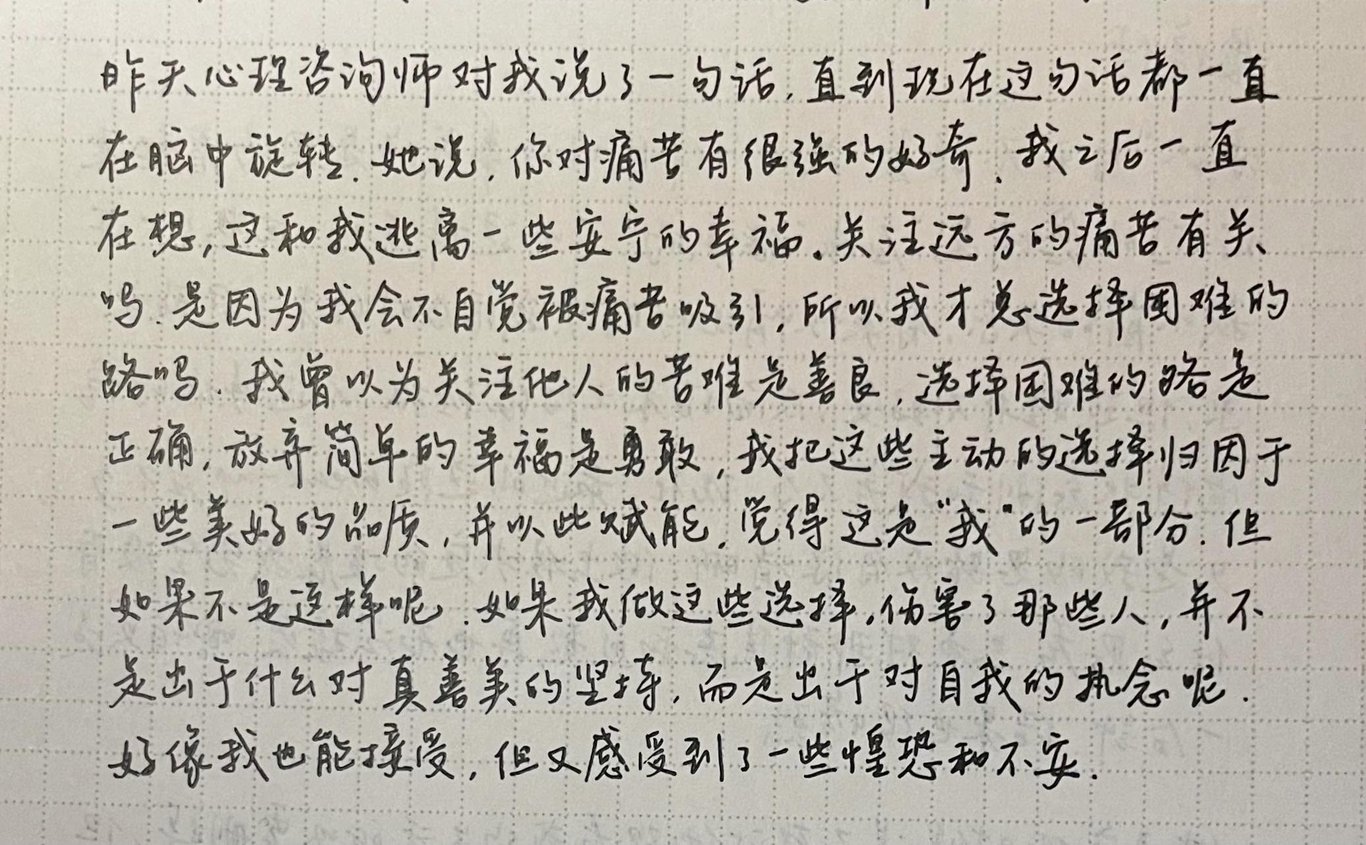 昨天心理咨询师对我说了一句话，直到现在这句话都一直
在脑中旋转．她说，你对痛苦有很强的好奇．我之后一直
在想，这和我逃离一些安宁的幸福．关注远方的痛苦有关
吗．是因为我会不自觉被痛苦吸引，所以我才总选择困难的
路吗．我曾以为关注他人的苦难是善良，选择困难的路是
正确，放弃简单的幸福是勇敢，我把这些主动的选择归因于
一些美好的品质，并以此赋能，觉得这是“我”的一部分．但
如果不是这样呢．如果我做这些选择，伤害了那些人，并不
是出于什么对真善美的坚持，而是出于对自我的执念呢．
好像我也能接受，但又感受到了一些惶恐和不安．